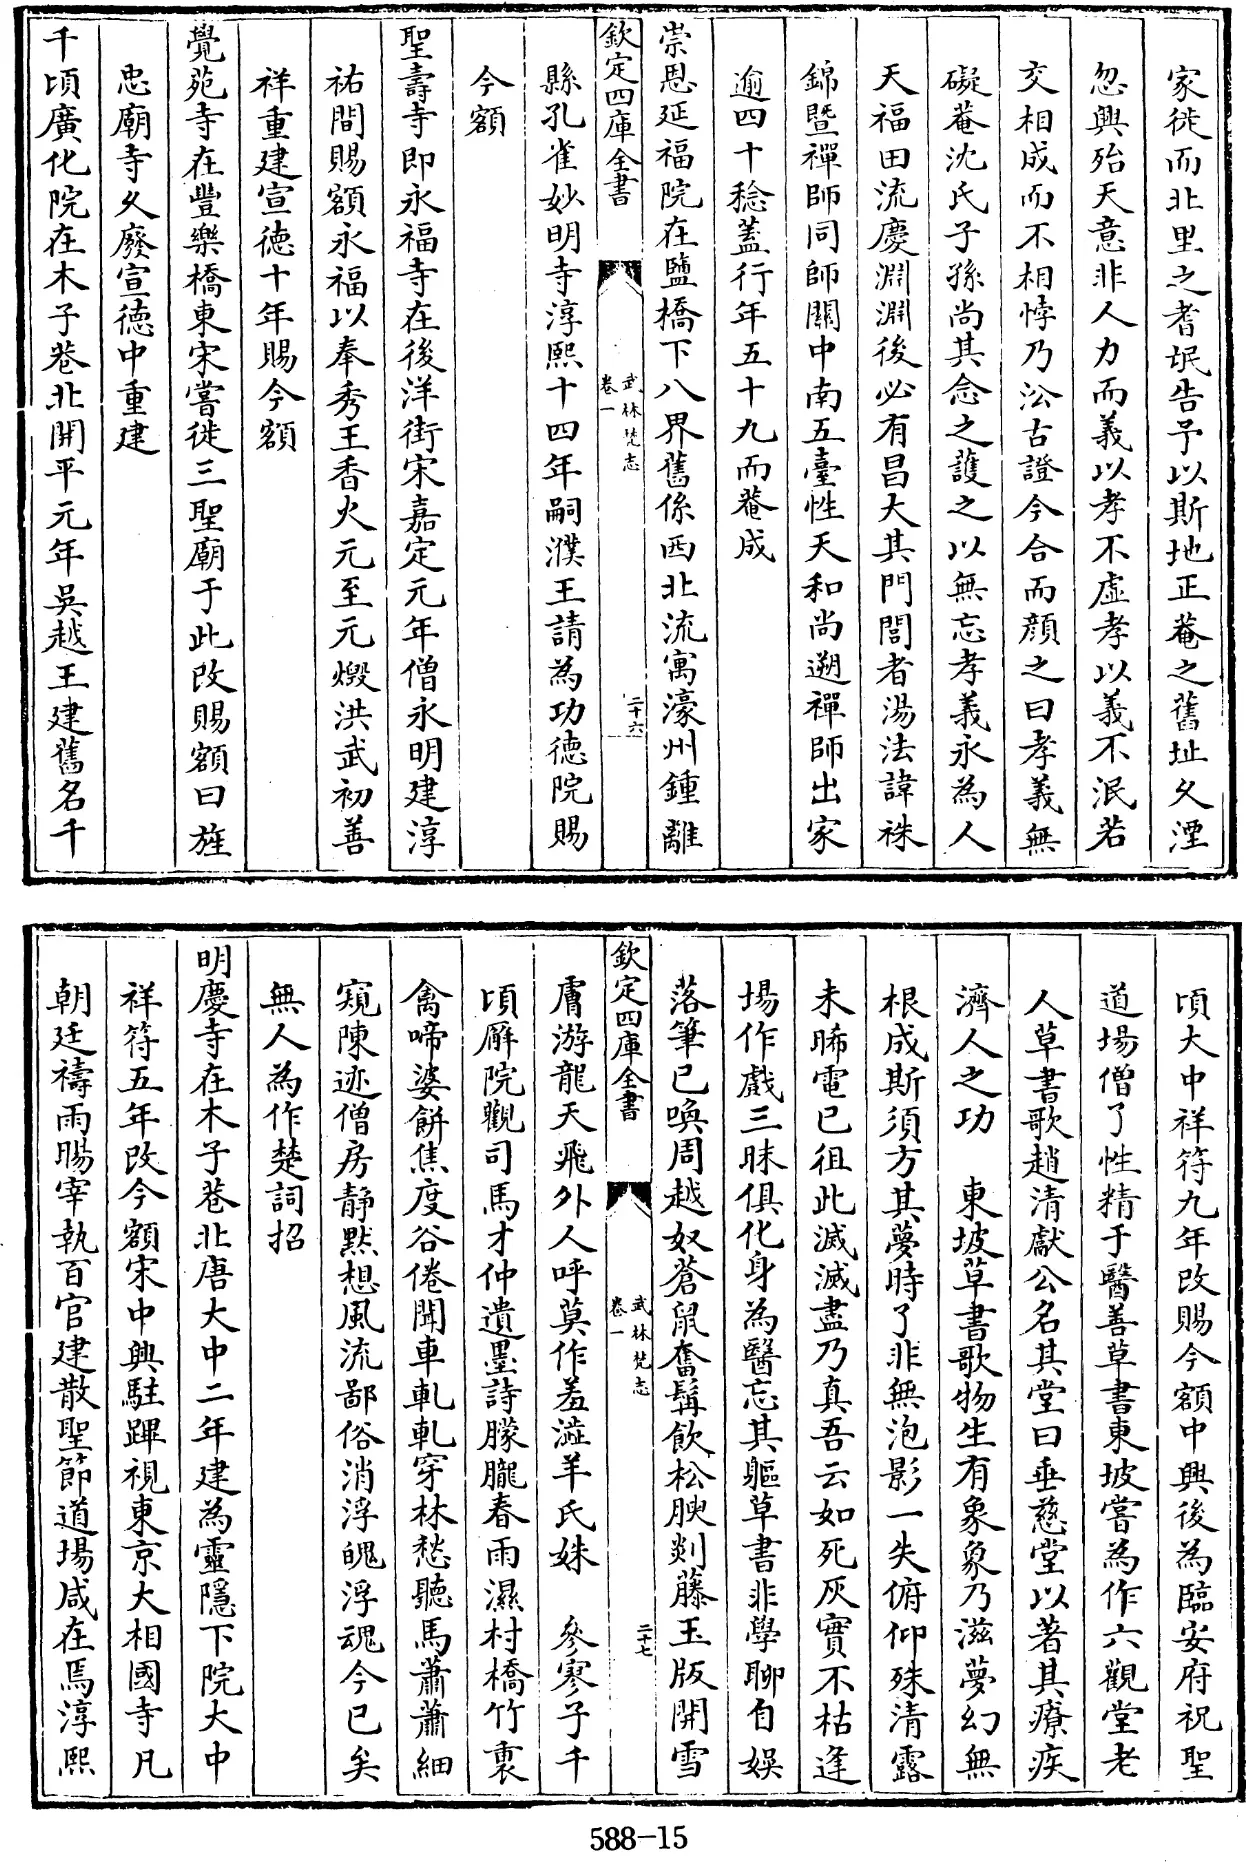 家徙而北里之耆氓告予以斯地正菴之舊址久湮
忽興殆天意非人力而義以孝不虛孝以義不泯若
交相成而不相悖乃㳂古證今合而顔之曰孝義無
礙菴沈氏子孫尚其念之䕶之以無忘孝義永為人
天福田流慶淵淵後必有昌大其門閭者湯法諱祩
錦暨禪師同師關中南五臺性天和尚遡禪師出家
逾四十稔葢行年五十九而菴成
崇恩延福院在鹽橋下八界舊係西北流寓濠州鍾離
欽定四庫全書
武林梵志
卷一
二十六
縣孔雀妙明寺淳熙十四年嗣濮王請為功德院賜
今額
聖壽寺即永福寺在後洋街宋嘉定元年僧永明建淳
祐間賜額永福以奉秀王香火元至元燬洪武初善
祥重建宣德十年賜今額
覺苑寺在豐樂橋東宋嘗徙三聖廟于此改賜額曰旌
忠廟寺久廢宣德中重建
千頃廣化院在木子巷北開平元年吳越王建舊名千
頃大中祥符九年改賜今額中興後為臨安府祝聖
道場僧了性精于醫善草書東坡嘗為作六觀堂老
人草書歌趙清獻公名其堂曰垂慈堂以著其療疾
濟人之功　東坡草書歌物生有象象乃滋夢幻無
根成斯須方其夢時了非無泡影一失俯仰殊清露
未晞電已徂此滅滅盡乃真吾云如死灰實不枯逢
場作戲三昧俱化身為醫忘其軀草書非學聊自娛
落筆已喚周越奴蒼鼠奮髯飲松腴剡藤玉版開雪
欽定四庫全書
武林梵志
卷一
二十七
膚游龍天飛外人呼莫作羞澁羊氏姝　參寥子千
頃廨院觀司馬才仲遺墨詩朦朧春雨濕村橋竹裏
禽啼婆餅焦度谷倦聞車軋軋穿林愁聽馬蕭蕭細
窺陳迹僧房靜黙想風流鄙俗消浮魄浮魂今已矣
無人為作楚詞招
明慶寺在木子巷北唐大中二年建為靈隱下院大中
祥符五年改今額宋中興駐蹕視東京大相國寺凡
朝廷禱雨暘宰執百官建散聖節道場咸在焉淳熙
588-15